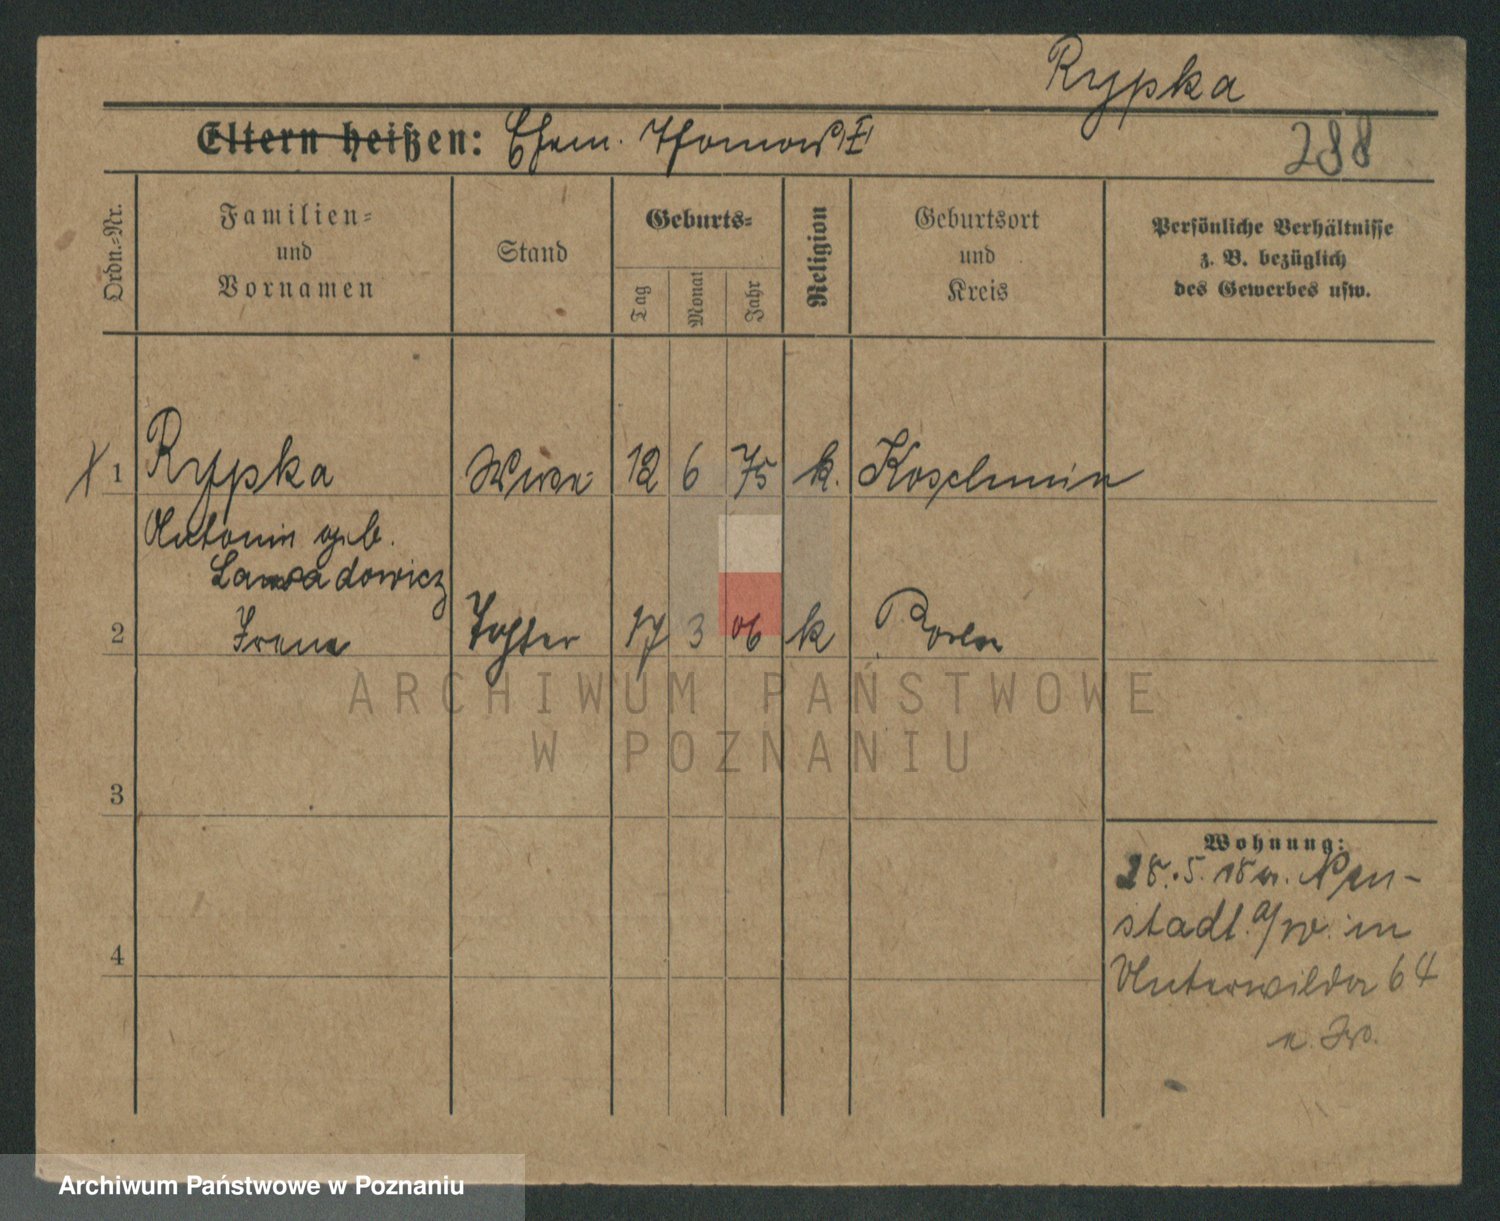 Rypka
Eltern heißen: Ehem.
288
Ordn.=Nr.
Familien=
und
Vornamen
Stand
Geburts=
Tag
Monat
Jahr
Religion
Geburtsort
und
Kreis
Persönliche Verhältnisse
z. B. bezüglich
des Gewerbes usw.
1 Rypka 12 6 75 k. Koschmin
Antonin geb.
2 Irene Tochter 17 3 06 k Posen
ARCHIWUM PAŃSTWOWE
W POZNANIU
3
4
Wohnung:
28.5.18 Neu-
stadt a/W. in
Unterwilda 64
Archiwum Państwowe w Poznaniu